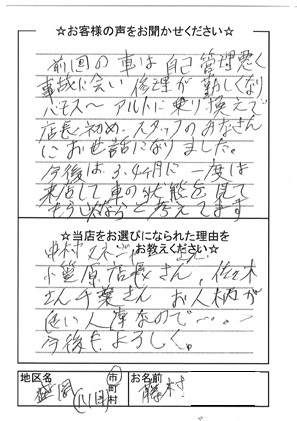 ☆お客様の声をお聞かせください☆
前回の車は自己管理悪く
事故に会い修理が難しくなり
バモス〜アルトに乗り換えで
店長初め、スタッフのみなさん
にお世話になりました。
今後は3、4ヶ月に一度は
来店して車の状態を見て
もらいながらと考えてます
☆当店をお選びになられた理由を
お教えください☆
中村
小笠原店長さん、佐々木
さん千葉さん お人柄が
良い人達なので〜。
今後もよろしく。
地区名
盛岡
市
町
村
お名前
藤村